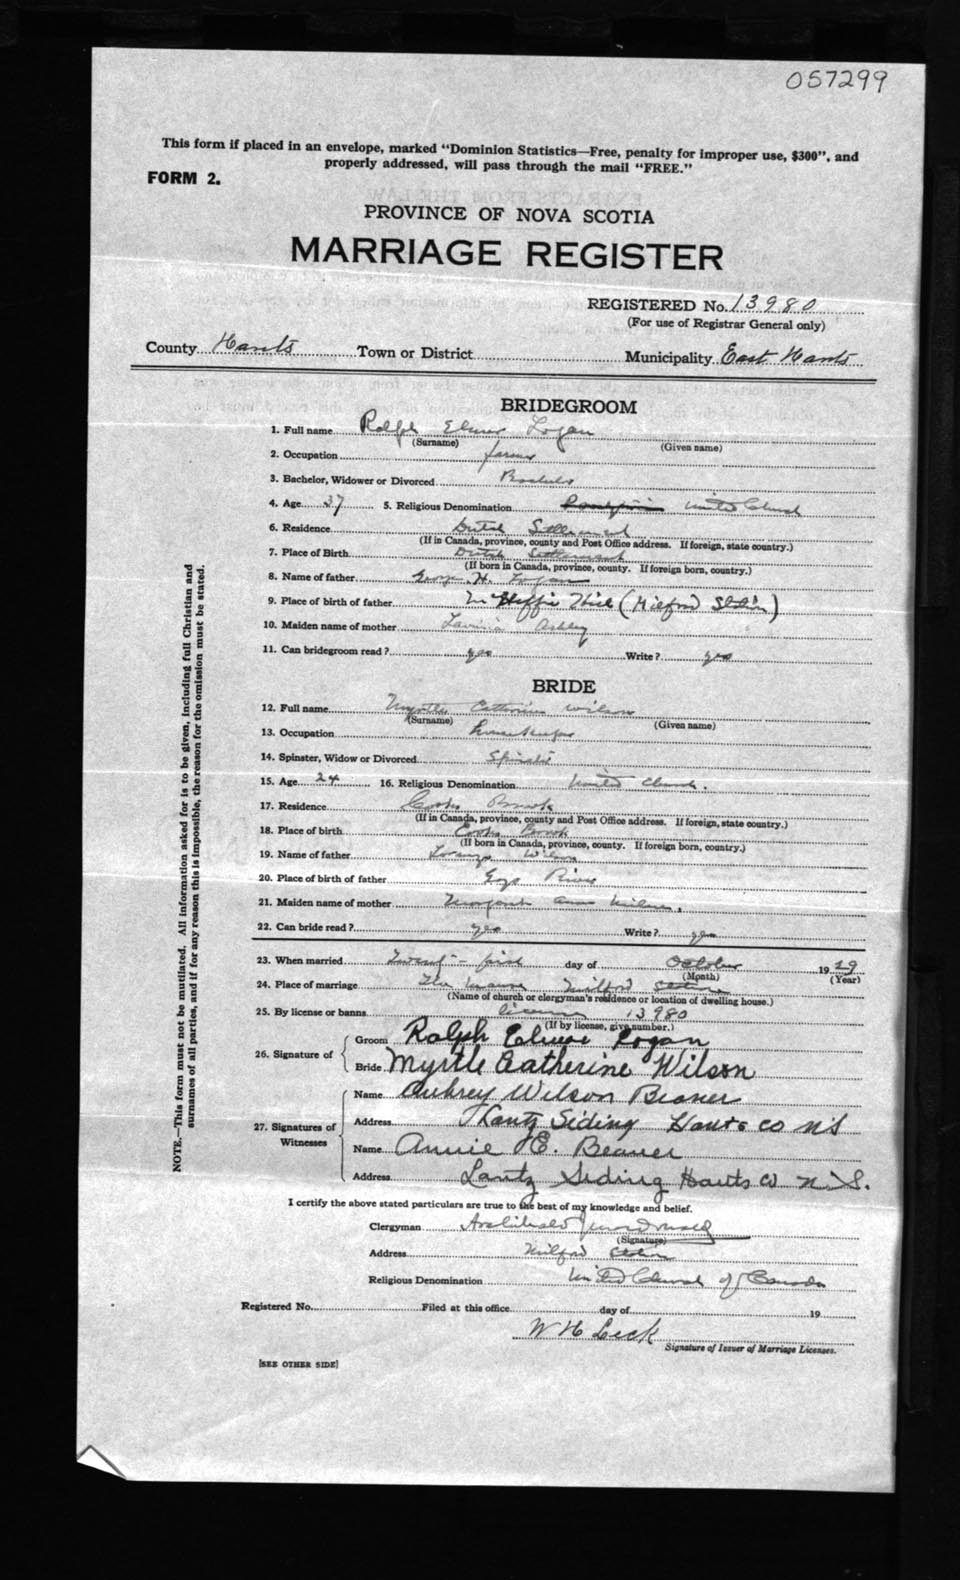 057299
This form if placed in an envelope, marked "Dominion Statistics—Free, penalty for improper use, $300", and
properly addressed, will pass through the mail "FREE."
FORM 2.
PROVINCE OF NOVA SCOTIA
MARRIAGE REGISTER
REGISTERED No. 13980
(For use of Registrar General only)
County Hants Town or District Municipality East Hants
BRIDEGROOM
1. Full name Ralph Elmer Logan
(Surname) (Given name)
2. Occupation farmer
3. Bachelor, Widower or Divorced Bachelor
4. Age 37 5. Religious Denomination United Church
6. Residence Dutch Settlement
(If in Canada, province, county and Post Office address. If foreign, state country.)
7. Place of Birth Dutch Settlement
(If born in Canada, province, county. If foreign born, country.)
8. Name of father George H. Logan
9. Place of birth of father McHeffie Hill (Milford Station)
10. Maiden name of mother Lavinia Ashley
11. Can bridegroom read? yes Write? yes
BRIDE
12. Full name Myrtle Catherine Wilson
(Surname) (Given name)
13. Occupation Housekeeper
14. Spinster, Widow or Divorced Spinster
15. Age 24 16. Religious Denomination United Church.
17. Residence Cooks Brook
(If in Canada, province, county and Post Office address. If foreign, state country.)
18. Place of birth Cooks Brook
(If born in Canada, province, county. If foreign born, country.)
19. Name of father Lorenzo Wilson
20. Place of birth of father Gays River
21. Maiden name of mother Margaret Anne
22. Can bride read? yes Write? yes
23. When married Twenty-first day of October 19 29
(Month) (Year)
24. Place of marriage The Manse Milford Station
(Name of church or clergyman's residence or location of dwelling house.)
25. By license or banns license 13980
(If by license, give number.)
26. Signature of
Groom Ralph Elmer Logan
Bride Myrtle Catherine Wilson
27. Signatures of Witnesses
Name Aubrey Wilson Beaver
Address Lantz Siding Hants Co NS
Name Annie E. Beaver
Address Lantz Siding Hants Co N.S.
I certify the above stated particulars are true to the best of my knowledge and belief.
Clergyman Archibald
(Signature)
Address Milford Station
Religious Denomination United Church of Canada
Registered No. Filed at this office day of 19
W H Leck
Signature of Issuer of Marriage Licenses.
[SEE OTHER SIDE]
NOTE.—This form must not be mutilated. All information asked for is to be given, including full Christian and
surnames of all parties, and if for any reason this is impossible, the reason for the omission must be stated.